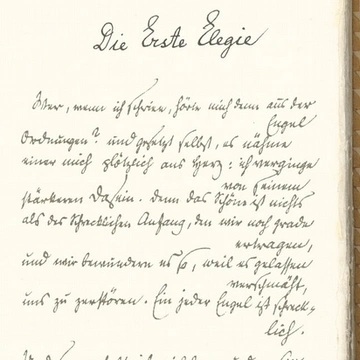 Die Erste Elegie
Wer, wenn ich schriee, hörte mich denn aus der
Engel
Ordnungen? und gesetzt selbst, es nähme
einer mich plötzlich ans Herz: ich verginge
von seinem
stärkeren Dasein. denn das Schöne ist nichts
als des Schrecklichen Anfang, den wir noch grade
ertragen,
und wir bewundern es so, weil es gelassen
verschmäht,
uns zu zerstören. Ein jeder Engel ist schreck-
lich.